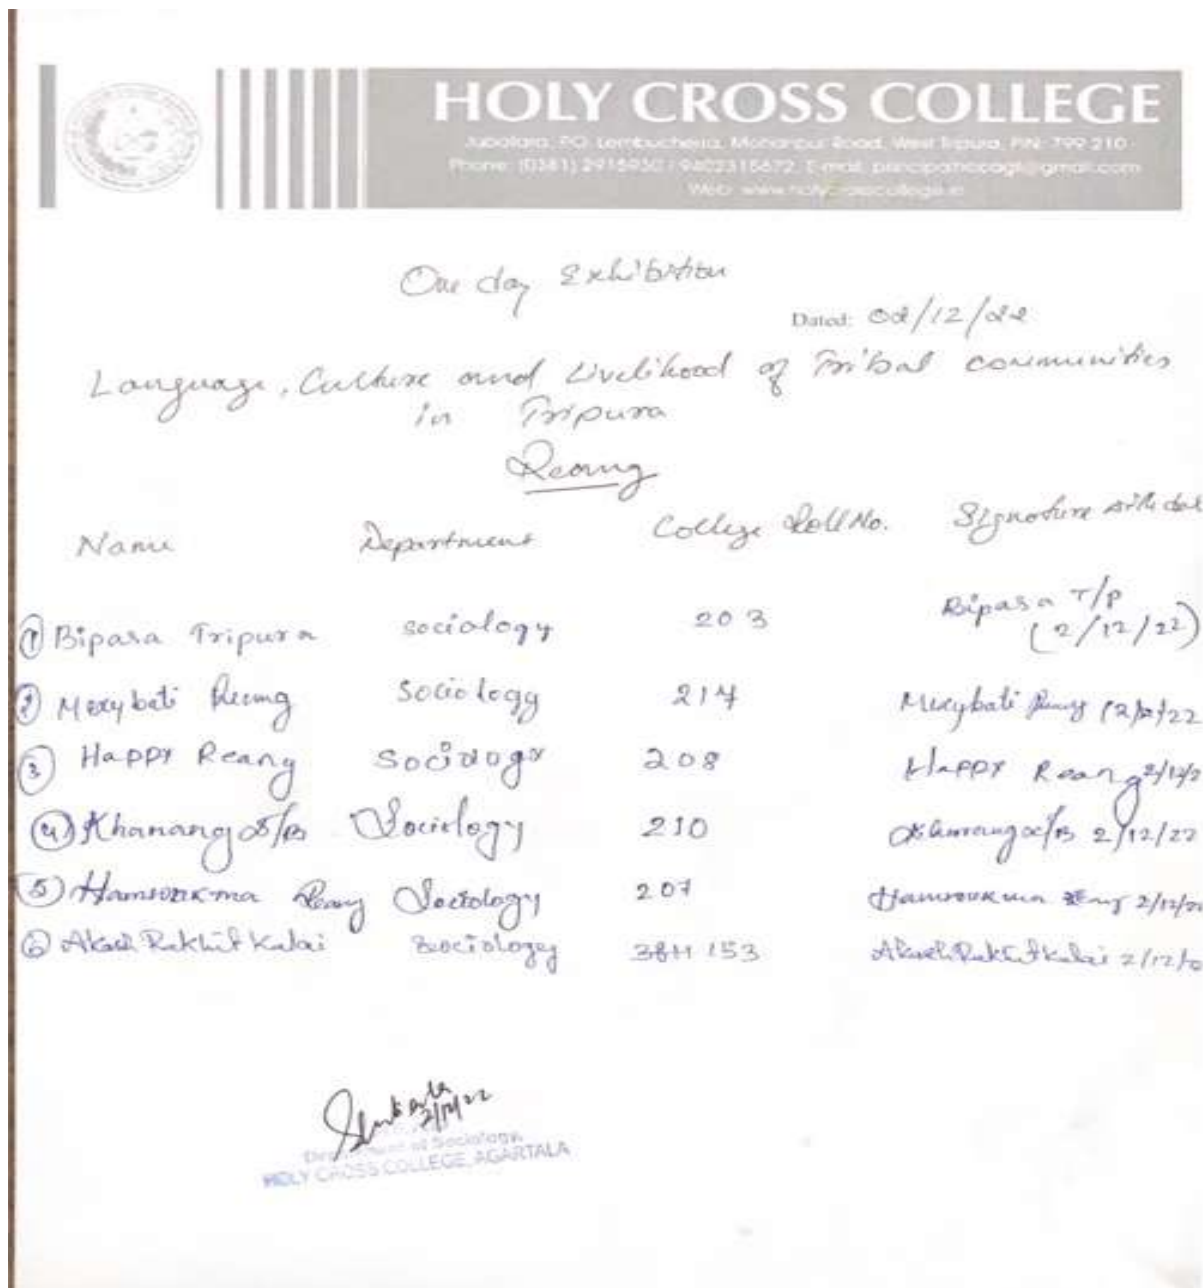 HOLY CROSS COLLEGE
Jubatara, P.O. Lembucherra, Mohanpur Road, West Tripura, PIN: 799 210
Phone: (0381) 2915930 / 9402315672, E-mail:
Web:
One day Exhibition
Dated: 02/12/22
Language, Culture and Livelihood of Tribal communities
in Tripura
Reang
Name Department College Roll No. Signature with
① Bipasa Tripura sociology 203 Bipasa T/P
(2/12/22)
② Merybati Reang Sociology 214 Merybati Reang
③ Happy Reang Sociology 208 Happy Reang
④ Khanang D/B Sociology 210 2/12/22
⑤ Reang Sociology 207
⑥ Akash Rakhit Kalai sociology 153 Akash Rakhit Kalai
2/12/22
Department of Sociology,
HOLY CROSS COLLEGE, AGARTALA